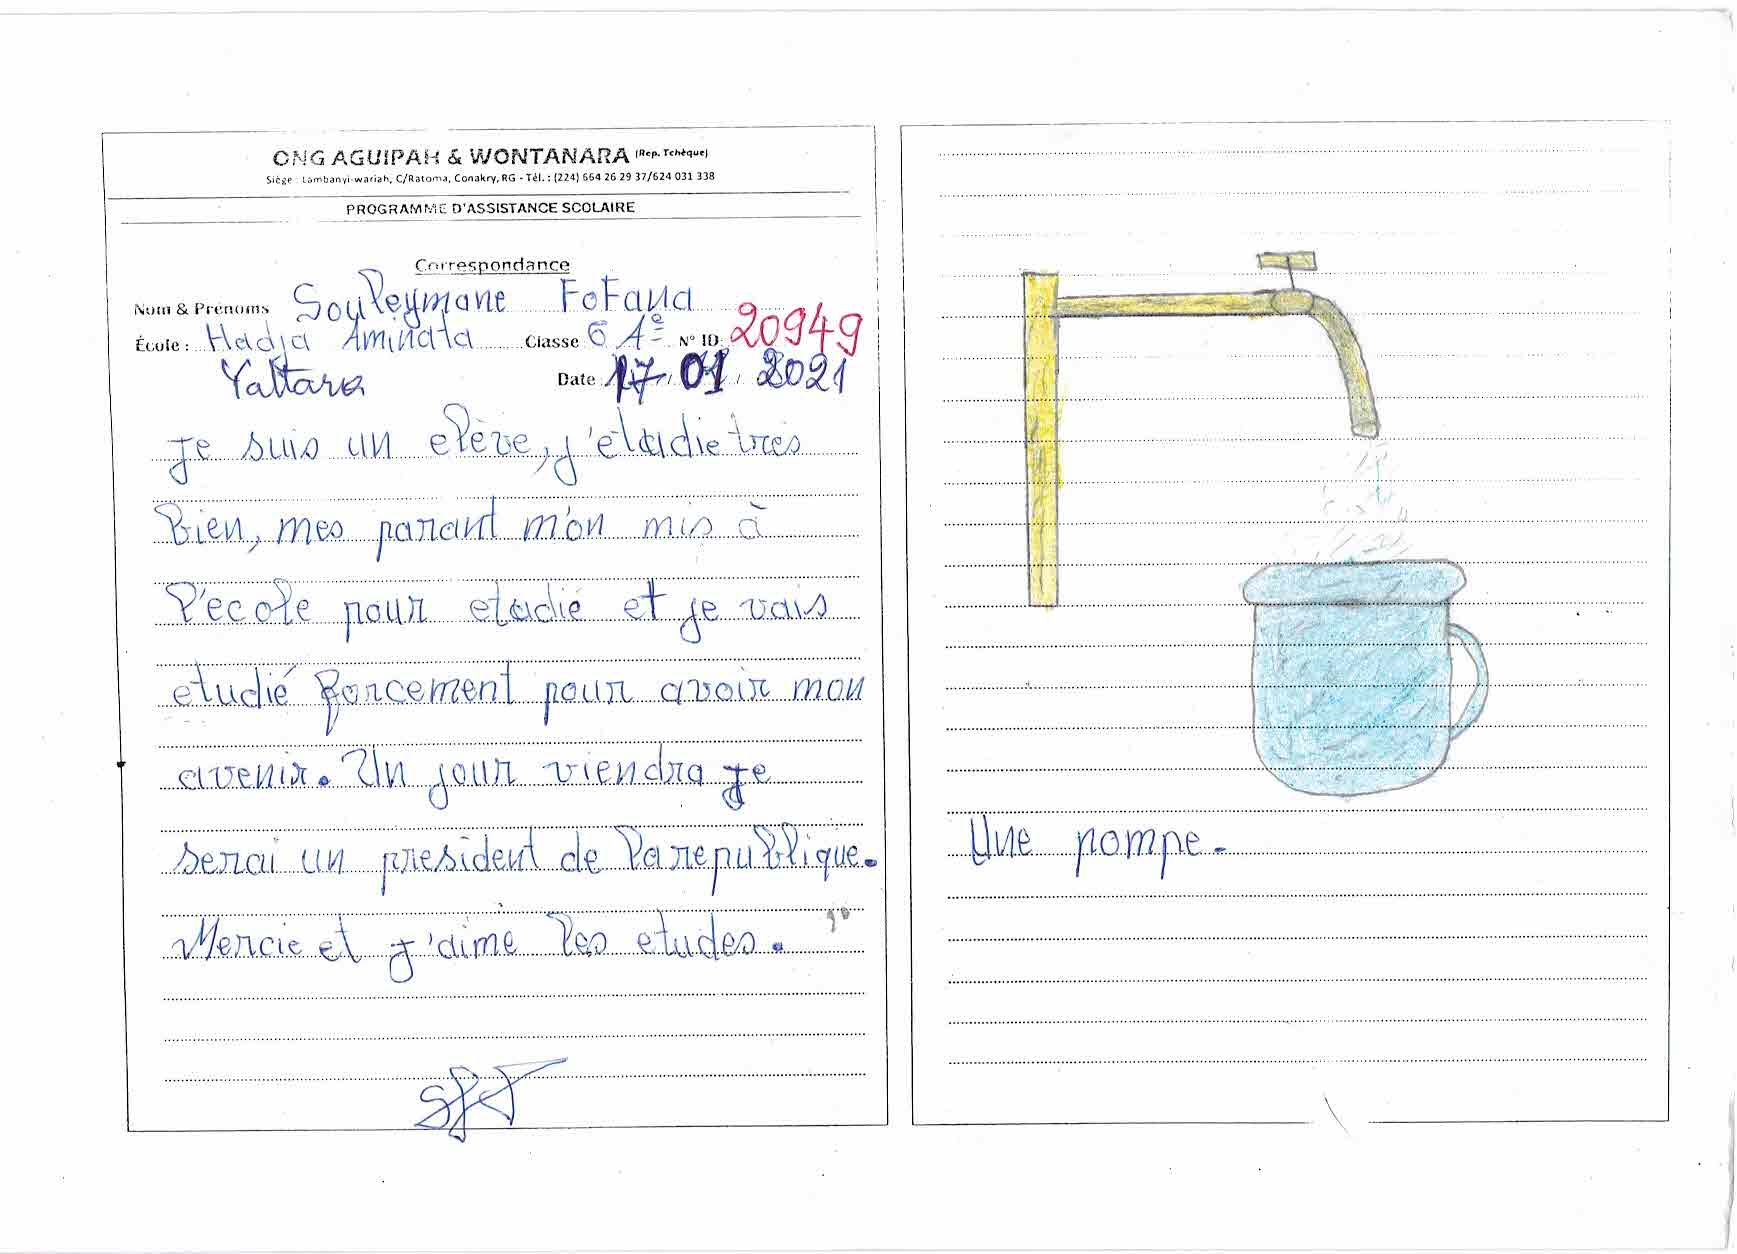 ONG AGUIPAH & WONTANARA (Rep. Tchèque)
Siège : Lambanyi-wariah, C/Ratoma, Conakry, RG - Tél. : (224) 664 26 29 37/624 031 338
PROGRAMME D'ASSISTANCE SCOLAIRE
Correspondance
Nom & Prénoms Souleymane Fofana
École : Hadja Aminata Classe 6 A= N° ID: 20949
Yattara Date 17 / 01 / 2021
je suis un elève, j'etudie tres
Bien, mes parant m'on mis à
l'ecole pour etudié et je vais
etudié forcement pour avoir mon
avenir. Un jour viendra je
serai un president de la republique.
Mercie et j'aime les etudes.
SFJ
Une pompe.